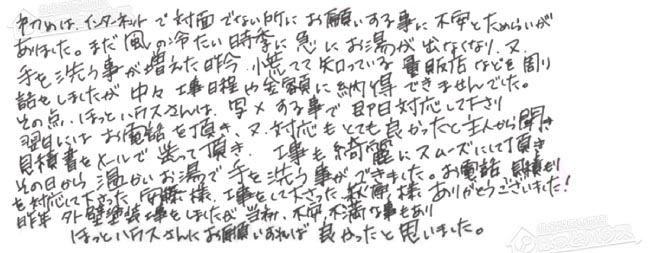 初めは、インターネットで対面でない所にお願いする事に不安とためらいが
ありました。まだ風の冷たい時季に急にお湯が出なくなり、又、
手を洗う事が増えた昨今、慌てて知っている量販店などを周り
話をしましたが中々工事日程や金額に納得できませんでした。
その点、ほっとハウスさんは、写メする事で即日対応して下さり
翌日にはお電話を頂き、又、対応もとても良かったと主人から聞き
見積書をメールで送って頂き、工事も綺麗にスムーズにして頂き
その日から温かいお湯で手を洗う事ができました。お電話、見積もり
を対応して下さった安藤様、工事をして下さった萩原様、ありがとうございました!
昨年外壁塗装工事をしましたが当初、不安、不満な事もあり
ほっとハウスさんにお願いすれば良かったと思いました。